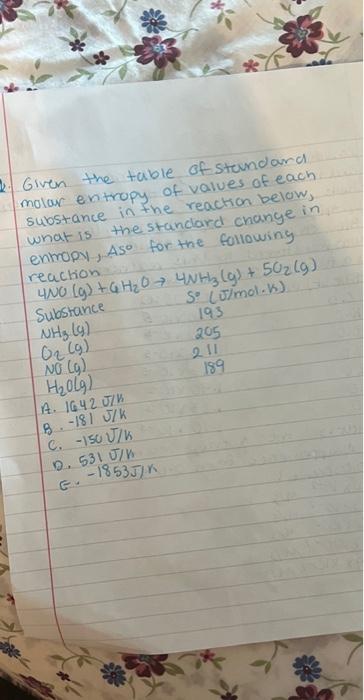 Given the table of standard
molar entropy of values of each
substance in the reaction below,
what is the standard change in
entropy, ΔS° for the following
reaction
4NO (g) + 6H2O → 4NH3 (g) + 5O2 (g)
Substance S° (J/mol·K)
NH3 (g) 193
O2 (g) 205
NO (g) 211
H2O(g) 189
A. 1642 J/K
B. -181 J/K
C. -150 J/K
D. 531 J/K
E. -1853 J/K